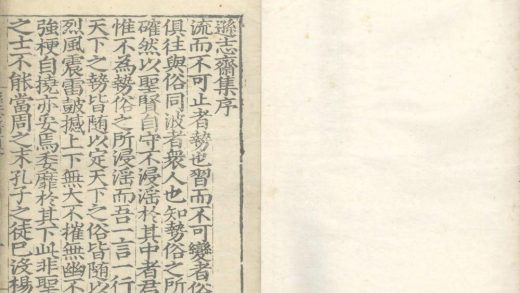 遜志齋集序
流而不可止者勢也習而不可變者俗
俱往與俗同波者衆人也知勢俗之所
確然以聖賢自守不浸滛於其中者君
惟不為勢俗之所浸滛而吾一言一行
天下之勢皆随以定天下之俗皆随以
烈風震雷皷撼上下無大不摧無幽不
強梗自撓亦安焉委靡於其下此非聖
之士不能當周之末孔子之徒已没楊